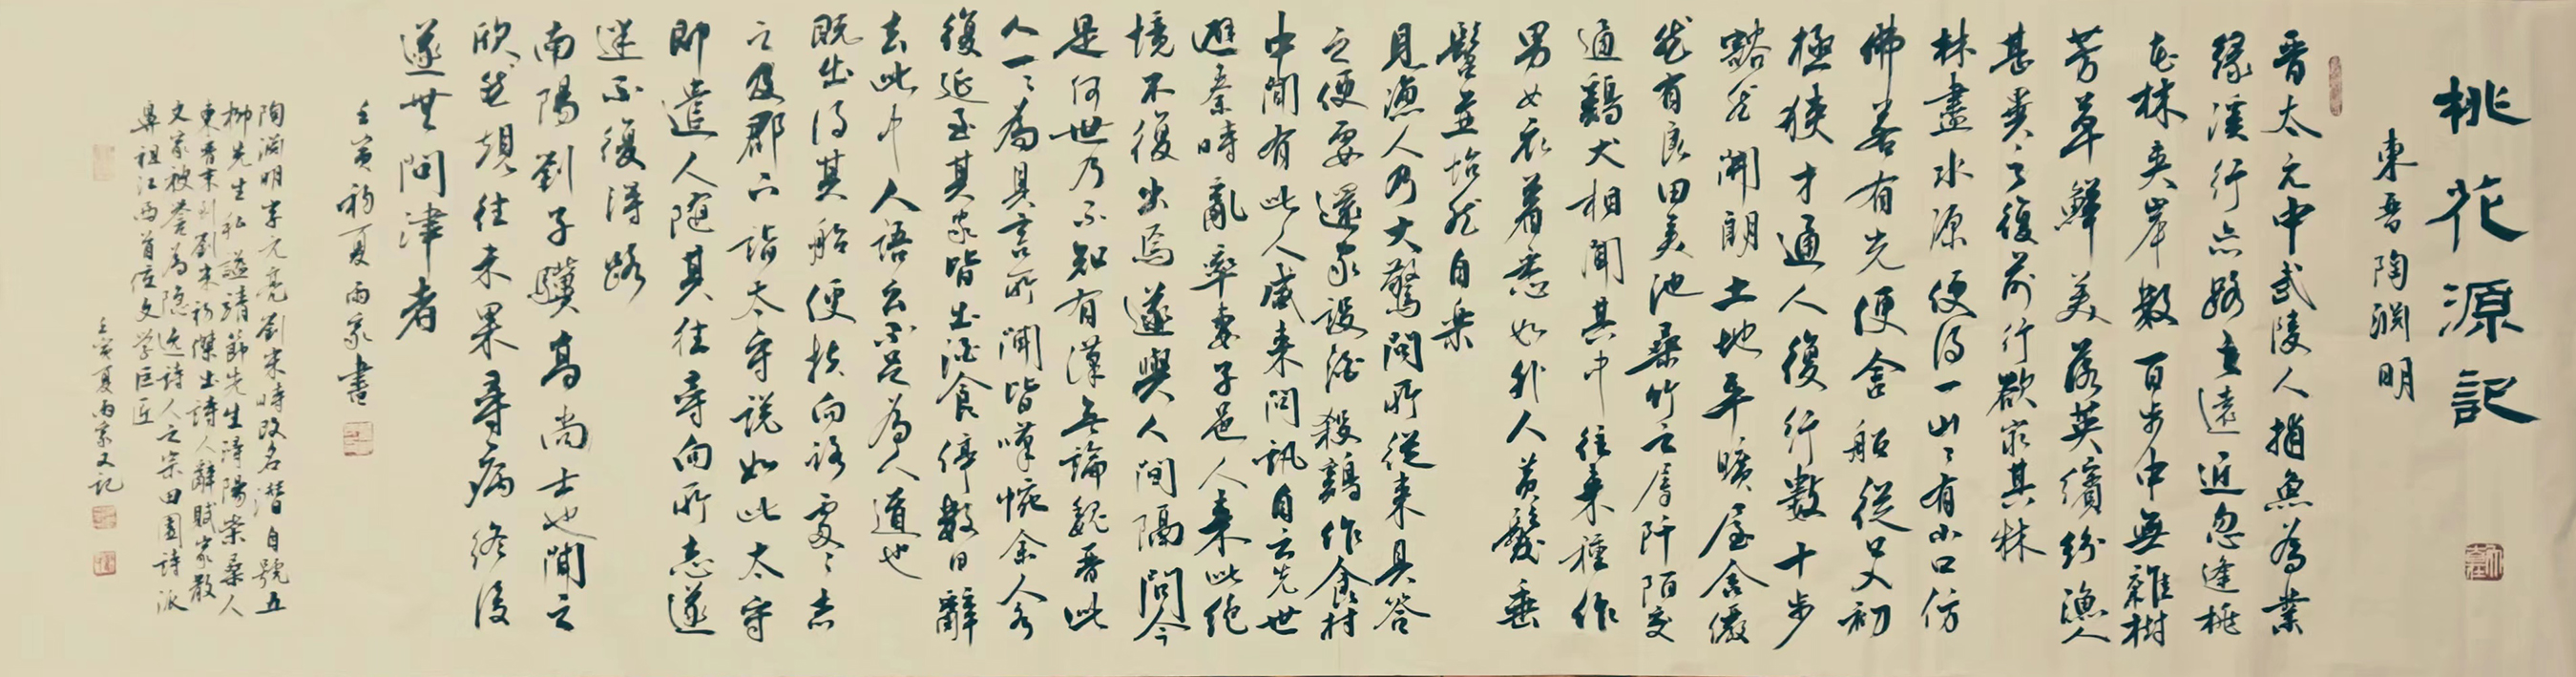 桃花源記
東晋陶渊明
晋太元中武陵人捕魚為業
緣溪行忘路之遠近忽逢桃
花林夹岸數百步中無雜樹
芳草鮮美落英繽紛漁人
甚異之復前行欲窮其林
林盡水源便得一山山有小口仿
佛若有光便舍船從口入初
極狹才通人復行數十步
豁然開朗土地平曠屋舍儼
然有良田美池桑竹之属阡陌交
通鷄犬相聞其中往来種作
男女衣着悉如外人黄髮垂
髫並怡然自樂
見漁人乃大驚問所從来具答
之便要還家設酒殺鷄作食村
中聞有此人咸来問訊自云先世
避秦時亂率妻子邑人来此绝
境不復出焉遂與人间隔問今
是何世乃不知有漢无論魏晋此
人一一為具言所聞皆嘆惋余人各
復延至其家皆出酒食停數日辭
去此中人語云不足為人道也
既出得其船便扶向路處處志
之及郡下詣太守説如此太守
即遣人随其往寻向所志遂
迷不復得路
南陽劉子驥高尚士也聞之
欣然規往未果尋病終後
遂無問津者
壬寅初夏雨家書
陶渊明字元亮劉宋時改名潜自號五
柳先生私謚靖節先生潯陽柴桑人
東晋末到劉宋初傑出詩人辭賦家散
文家被誉為隐逸詩人之宗田園詩派
鼻祖江西首位文学巨匠
壬寅夏雨家又記